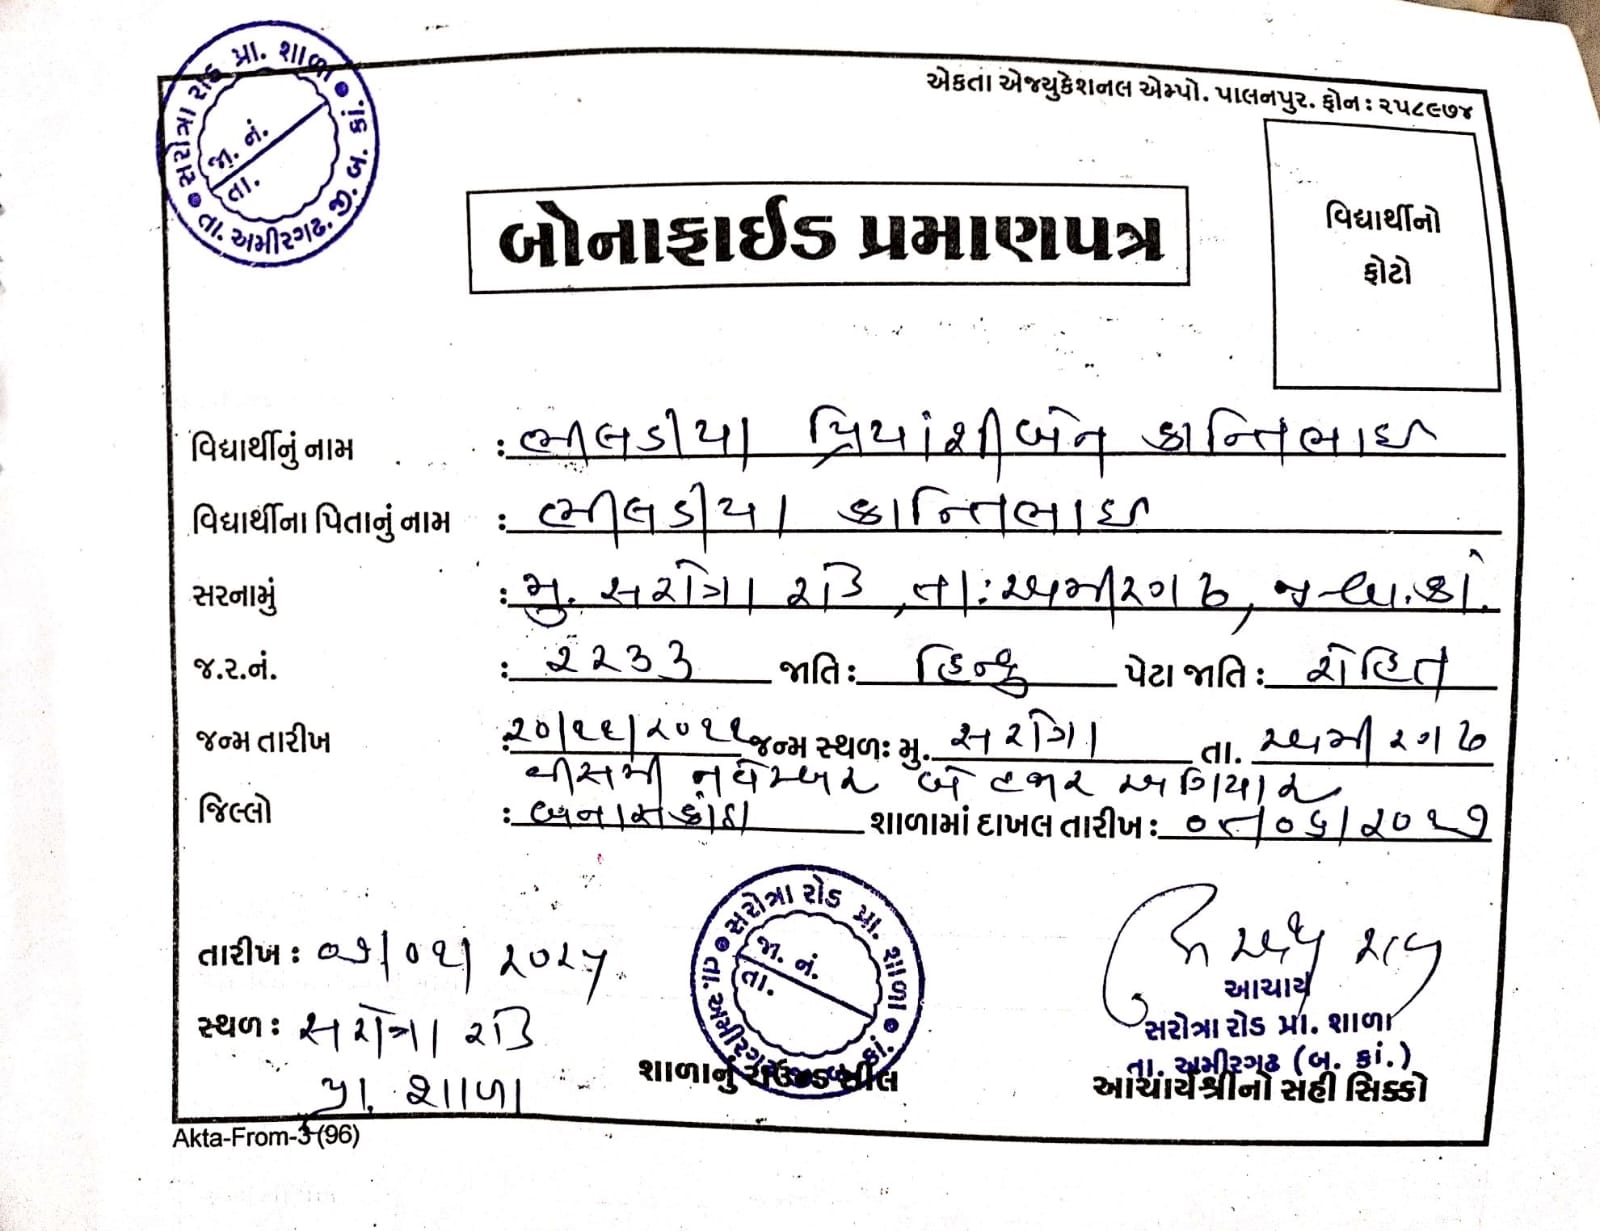 એકતા એજ્યુકેશનલ એમ્પો. પાલનપુર. ફોન : ૨૫૮૯૭૪
સરોત્રા રોડ પ્રા. શાળા
તા. અમીરગઢ. જી. બ. કાં.
જા. નં.
તા.
બોનાફાઈડ પ્રમાણપત્ર
વિદ્યાર્થીનો
ફોટો
વિદ્યાર્થીનું નામ : ભીલડીયા પ્રિયાંશીબેન કાન્તિભાઈ
વિદ્યાર્થીના પિતાનું નામ : ભીલડીયા કાન્તિભાઈ
સરનામું : મુ. સરોત્રા રોડ, તા: અમીરગઢ, જી-બ.કાં.
જ.ર.નં. : ૨૨૩૩ જાતિ : હિન્દુ પેટા જાતિ : રોહિત
જન્મ તારીખ : ૨૦/૧૧/૨૦૧૧ જન્મ સ્થળ: મુ. સરોત્રા તા. અમીરગઢ
વીસમી નવેમ્બર બે હજાર અગિયાર
જિલ્લો : બનાસકાંઠા શાળામાં દાખલ તારીખ : ૦૯/૦૬/૨૦૧૭
તારીખ : ૦૭/૦૧/૨૦૨૫
સ્થળ : સરોત્રા રોડ
પ્રા. શાળા
સરોત્રા રોડ પ્રા. શાળા
તા. અમીરગઢ. જી. બ. કાં.
જા. નં.
તા.
શાળાનું રાઉન્ડ સીલ
આચાર્ય
સરોત્રા રોડ પ્રા. શાળા
તા. અમીરગઢ (બ. કાં.)
આચાર્યશ્રીનો સહી સિક્કો
Akta-From-3 (96)